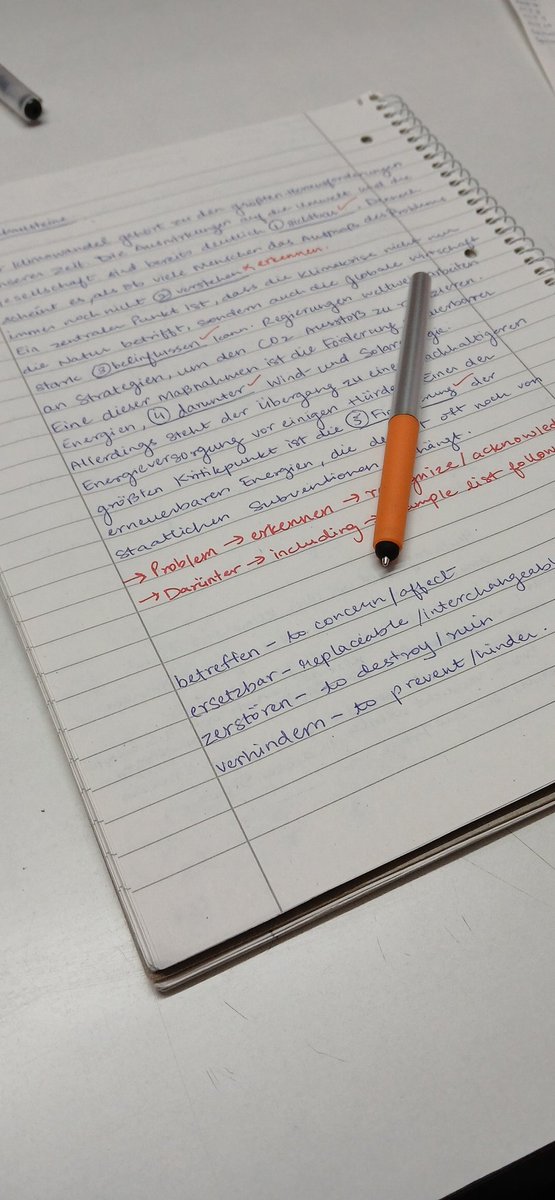 Klimawandel gehört zu den größten Herausforderungen
unserer Zeit. Die Auswirkungen auf die Umwelt und die
Gesellschaft sind bereits deutlich ① sichtbar ✓. Dennoch
scheint es, als ob viele Menschen das Ausmaß des Problems
immer noch nicht ② verstehen ✗ erkennen.
Ein zentraler Punkt ist, dass die Klimakrise nicht nur
die Natur betrifft, sondern auch die globale Wirtschaft
stark ③ beeinflussen ✓ kann. Regierungen weltweit arbeiten
an Strategien, um den CO2 Ausstoß zu reduzieren.
Eine dieser Maßnahmen ist die Förderung
Energien, ④ darunter ✓ Wind- und
Allerdings steht der Übergang zu einer nachhaltigeren
Energieversorgung vor einigen Hürden. Einer der
größten Kritikpunkt ist die ⑤ ✓ der
erneuerbaren Energien, die oft noch von
staatlichen Subventionen
→ Problem → erkennen → recognize/acknowled
→ Darünter → including → list follow
betreffen - to concern/affect
ersetzbar - replaceable/interchangeable
zerstören - to destroy/ruin
verhindern - to prevent/hinder.